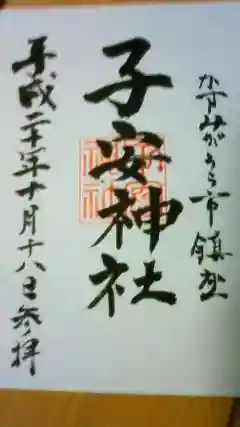 かすみがうら市鎮座
子安神社
平成二十年十月十八日参拝